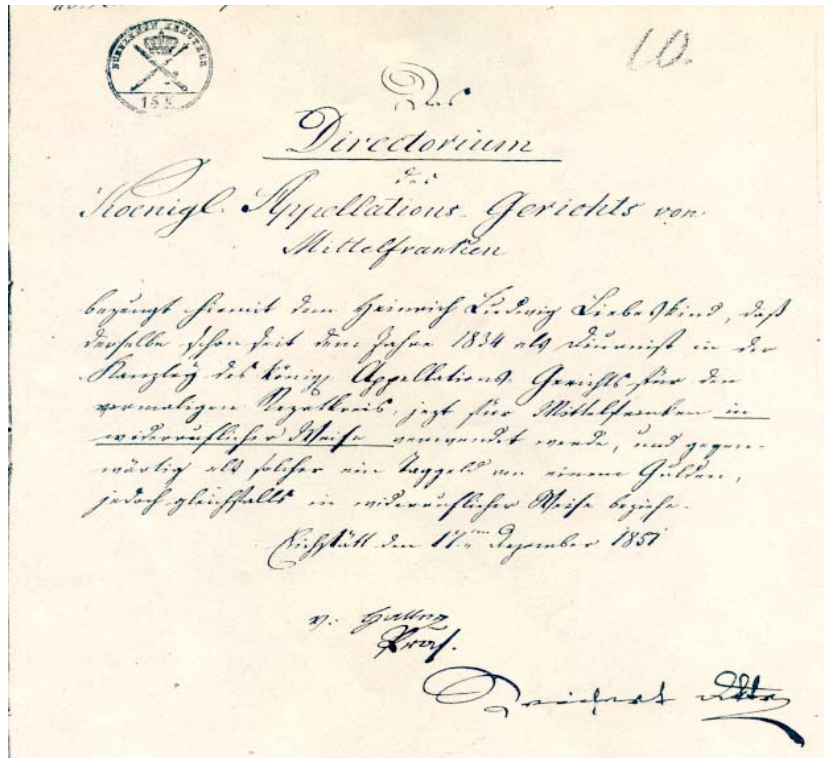 FÜNFZEHN KREUTZER
15 K
10.
Das
Directorium
des
Koenigl. Appellations-Gerichts von
Mittelfranken
bezeugt hiemit dem Heinrich Ludwig Liebeskind, daß
derselbe schon seit dem Jahre 1834 als Diurnist in der
Kanzley des königl. Appellations-Gerichts für den
vormaligen Rezatkreis, jezt für Mittelfranken in
widerruflicher Weise verwendet werde, und gegen-
wärtig als solcher ein Taggeld von einem Gulden,
jedoch gleichfalls in widerruflicher Weise beziehe.
Eichstätt den 17ten Dezember 1851
v.
Präs.